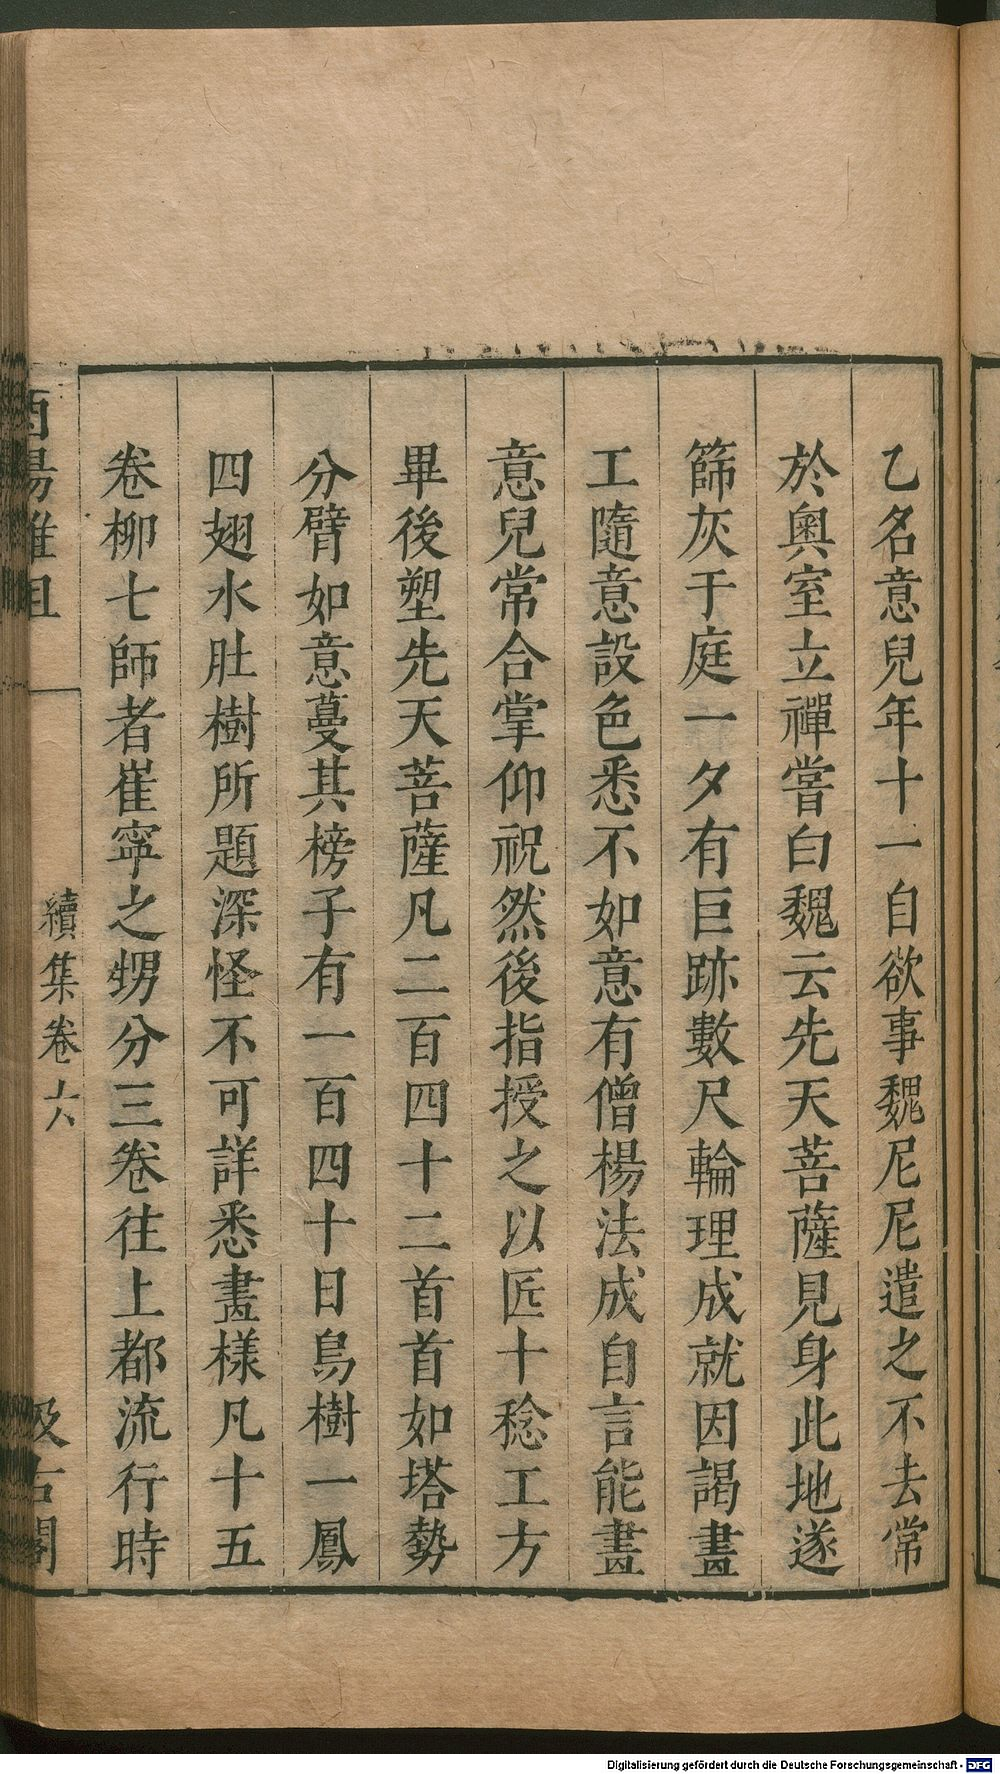 乙名意兒年十一自欲事魏尼尼遣之不去常
於奧室立禪嘗白魏云先天菩薩見身此地遂
篩灰于庭一夕有巨跡數尺輪理成就因謁畫
工隨意設色悉不如意有僧楊法成自言能畫
意兒常合掌仰祝然後指授之以匠十稔工方
畢後塑先天菩薩凡二百四十二首首如塔勢
分臂如意蔓其榜子有一百四十日鳥樹一鳳
四翅水肚樹所題深怪不可詳悉畫樣凡十五
卷柳七師者崔寧之甥分三卷往上都流行時
酉陽雜俎
續集卷六
汲古閣
Digitalisierung gefördert durch die Deutsche Forschungsgemeinschaft - DFG